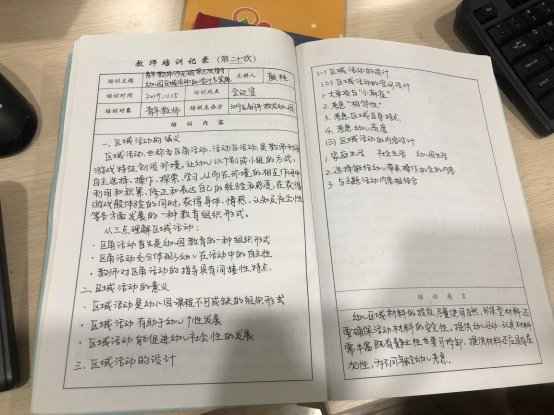 教师培训记录(第二十次)
培训主题
幼儿园区域活动的设计与实施
主讲人
培训时间
2019.11.15
培训地点
会议室
培训对象
青年教师
培训主办方
培训内容
一、区域活动的涵义
区域活动,也称为区角活动、活动区活动,是教师利用
游戏特征创设环境,让幼儿以个别或小组的方式,
自主选择、操作、探索、学习,从而在环境的相互作用中
利用和积累、修正和表达自己的经验和感受,在获得
游戏般体验的同时,获得身体、情感、认知及社会性
等各方面发展的一种教育组织形式。
从三点理解区域活动:
·区角活动首先是幼儿园教育的一种组织形式
·区角活动充分体现了幼儿在活动中的自主性
·教师对区角活动的指导具有间接性特点.
二、区域活动的意义
·区域活动是幼儿园课程不可或缺的组织形式
·区域活动有助于幼儿个性发展
·区域活动能促进幼儿社会性的发展
三、区域活动的设计
(一)区域活动的设计
(二)区域活动的空间设计
2.考虑"相邻性"
3.考虑区域自身特点
4.考虑幼儿高度
(三)区域活动的内容设计
1.家庭生活 社会生活 幼儿园生活
2.选择能给幼儿带来操作机会的内容
3.与主题活动内容相结合
培训感言
幼儿区域材料的投放,尽量使用自然、环保型材料
要确保活动材料的安全性,提供幼儿活动、玩具材料
需丰富,既有静止性也要可移动,提供材料还应就层
次性,为不同年龄幼儿考虑.